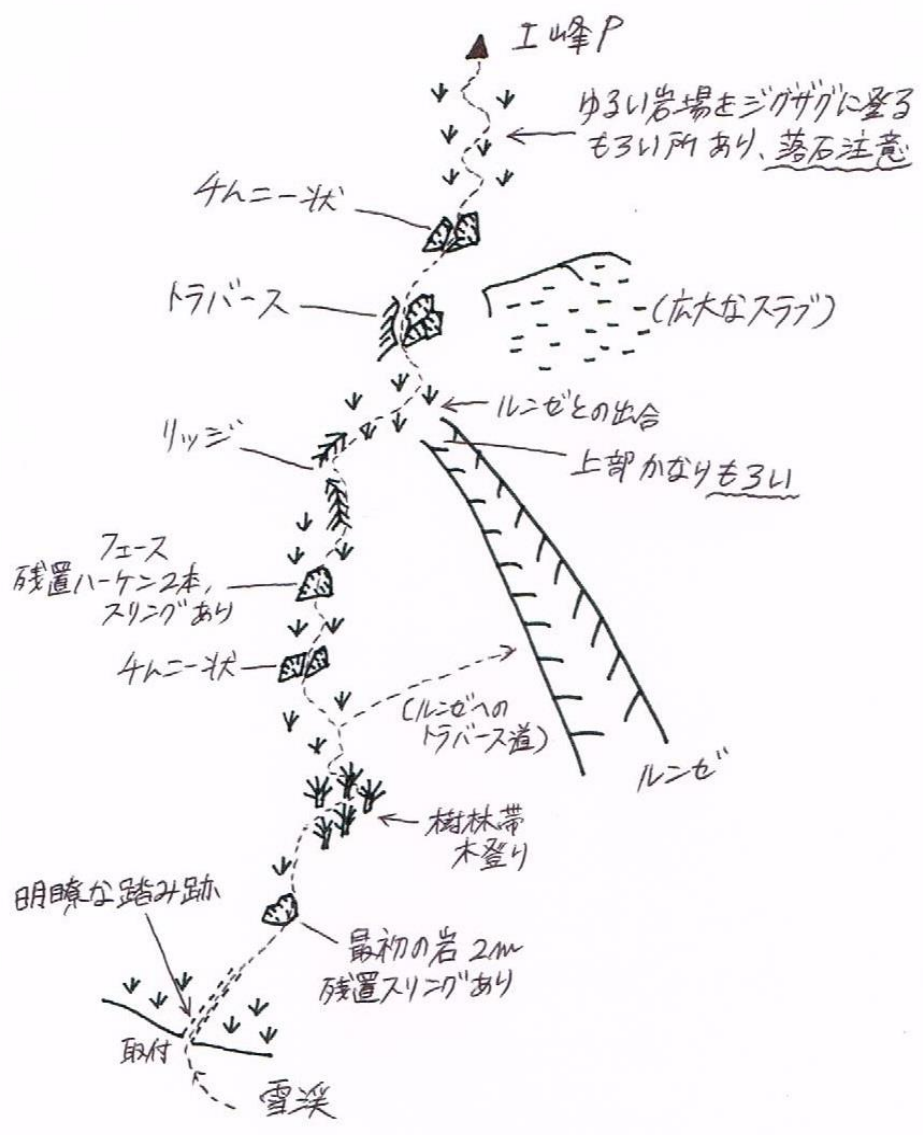 I峰P
ゆるい岩場をジグザグに登る
もろい所あり、落石注意
チムニー状
トラバース
(広大なスラブ)
ルンゼとの出合
リッジ
上部かなりもろい
フェース
残置ハーケン2本、
スリングあり
チムニー状
(ルンゼへの
トラバース道)
ルンゼ
樹林帯
木登り
明瞭な踏み跡
最初の岩 2m
残置スリングあり
取付
雪渓